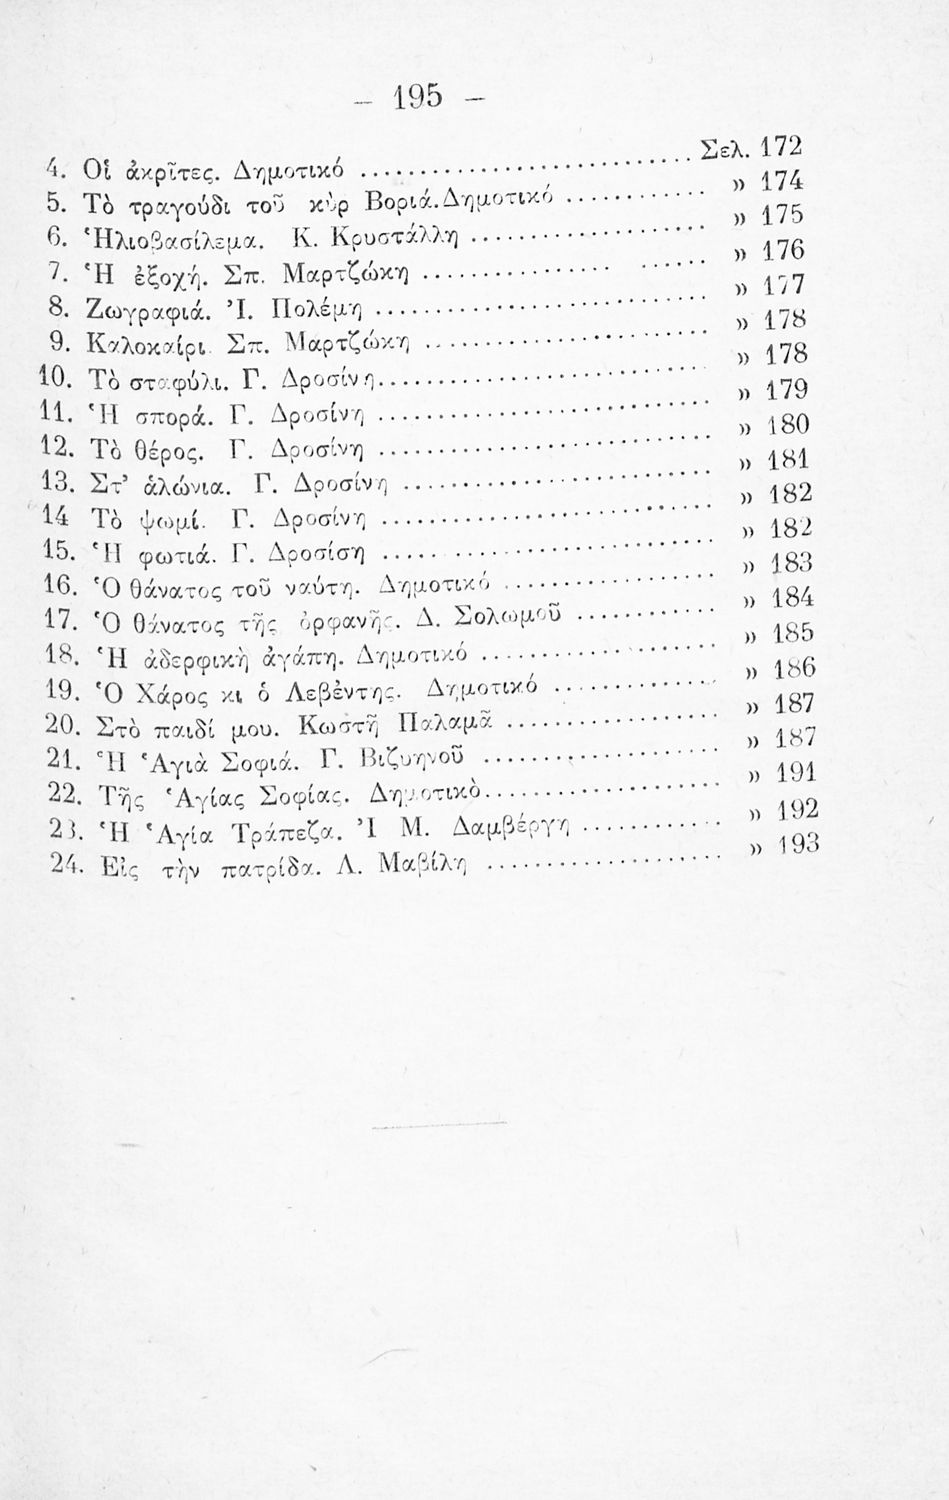 – 195 –
4. Οἱ ἀκρῖτες. Δημοτικό .......... Σελ. 172
5. Τὸ τραγούδι τοῦ κὺρ Βοριά. Δημοτικό .......... » 174
6. Ἡλιοβασίλεμα. Κ. Κρυστάλλη .......... » 175
7. Ἡ ἐξοχή. Σπ. Μαρτζώκη .......... » 176
8. Ζωγραφιά. Ἰ. Πολέμη .......... » 177
9. Καλοκαίρι. Σπ. Μαρτζώκη .......... » 178
10. Τὸ σταφύλι. Γ. Δροσίνη .......... » 178
11. Ἡ σπορά. Γ. Δροσίνη .......... » 179
12. Τὸ θέρος. Γ. Δροσίνη .......... » 180
13. Στ’ ἁλώνια. Γ. Δροσίνη .......... » 181
14 Τὸ ψωμί. Γ. Δροσίνη .......... » 182
15. Ἡ φωτιά. Γ. Δροσίση .......... » 182
16. Ὁ θάνατος τοῦ ναύτη. Δημοτικό .......... » 183
17. Ὁ θάνατος τῆς ὀρφανῆς. Δ. Σολωμοῦ .......... » 184
18. Ἡ ἀδερφικὴ ἀγάπη. Δημοτικό .......... » 185
19. Ὁ Χάρος κι ὁ Λεβέντης. Δημοτικό .......... » 186
20. Στὸ παιδί μου. Κωστῆ Παλαμᾶ .......... » 187
21. Ἡ Ἁγιὰ Σοφιά. Γ. Βιζυηνοῦ .......... » 187
22. Τῆς Ἁγίας Σοφίας. Δημοτικὸ .......... » 191
23. Ἡ Ἁγία Τράπεζα. Ἰ Μ. Δαμβέργη .......... » 192
24. Εἰς τὴν πατρίδα. Λ. Μαβίλη .......... » 193